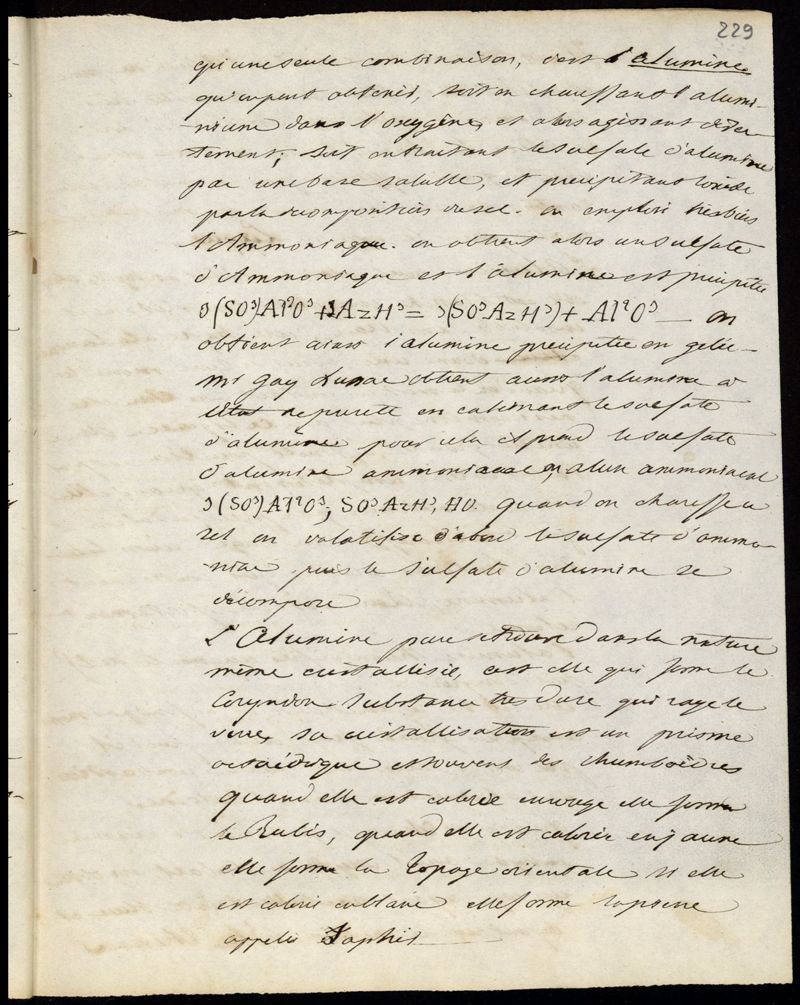 229
qu'une seule combinaison, c'est l'alumine
qu'on peut obtenir, soit en chauffant l'alumi-
-nium dans l'oxygène, et alors agissant direc-
tement, soit en traitant le sulfate d'alumine
par une base soluble, et précipitant l'oxide
par la décomposition du sel. on emploi très bien
l'Ammoniaque. on obtient alors un sulfate
d'Ammoniaque et l'alumine est précipitée
3(SO³)Al²O³ + 3AzH³ = 3(SO³AzH³) + Al²O³ — on
obtient ainsi l'alumine précipitée en gelée —
Mr Gay Lussac obtient aussi l'alumine à
l'état de pureté en calcinant le sulfate
d'alumine pour cela il prend le sulfate
d'alumine ammoniacal, alun ammoniacal
3(SO³)Al²O³, SO³AzH³, HO. quand on chauffe ce
sel on volatilise d'abord le sulfate d'ammo-
-niac puis le sulfate d'alumine se
décompose
L'Alumine pure se trouve dans la nature
même cristallisée, c'est elle qui forme le
Coryndon substance très dure qui raye le
verre, sa cristallisation est un prisme
et souvent des rhumboèdres
quand elle est colorée en rouge elle forme
le Rubis, quand elle est colorée en jaune
elle forme la Topaze orientale si elle
est colorée en bleue elle forme la pierre
appelée Saphir